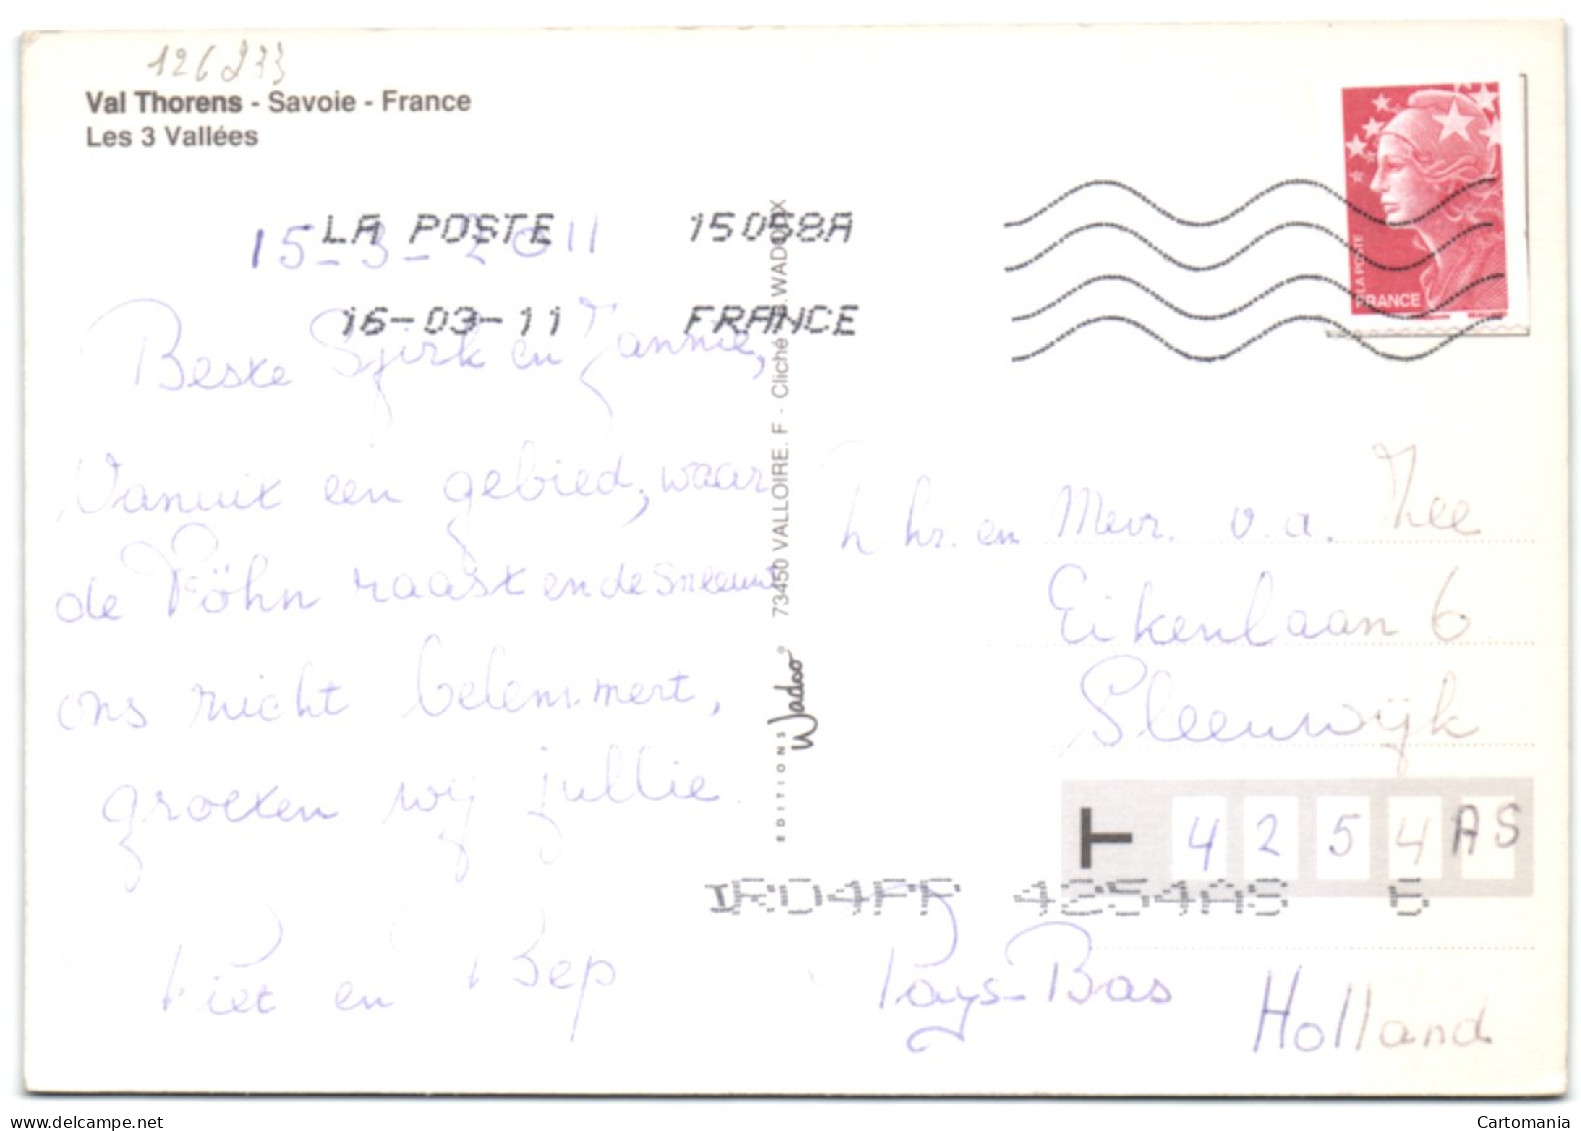 126233
Val Thorens - Savoie - France
Les 3 Vallées
LA POSTE 15068A
15-3-2011
16-03-11 FRANCE
Beste Sjirk en Jannie,
Vanuit een gebied, waar
de Föhn raast en de Sneeuw
ons nicht belemmert,
groeten wij jullie.
Piet en Bep
EDITIONS Wadoo ® 73450 VALLOIRE. F - Cliché WADOUX
LA POSTE
FRANCE
hr. en Mevr. v.a. Zee
Eikenlaan 6
Sleeuwijk
T 4254AS
4254AS 6
Pays-Bas
Holland
Cartomania